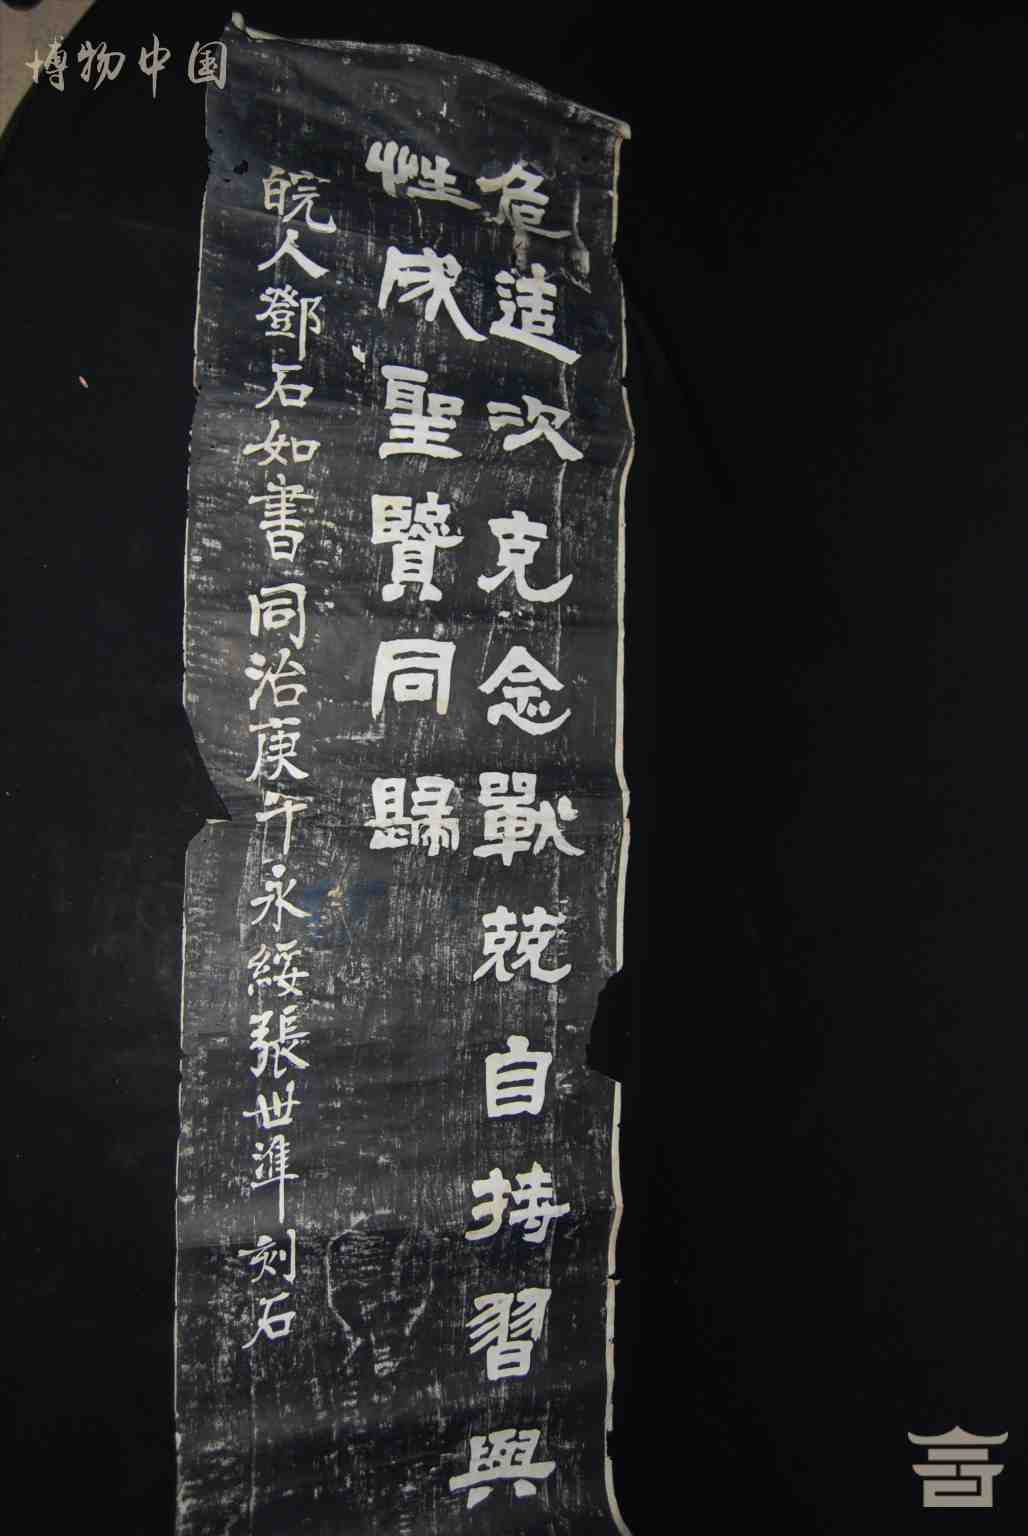 博物中国
危造次克念戰兢自持習與
性成聖賢同歸
皖人鄧石如書同治庚午永綏張世準刻石